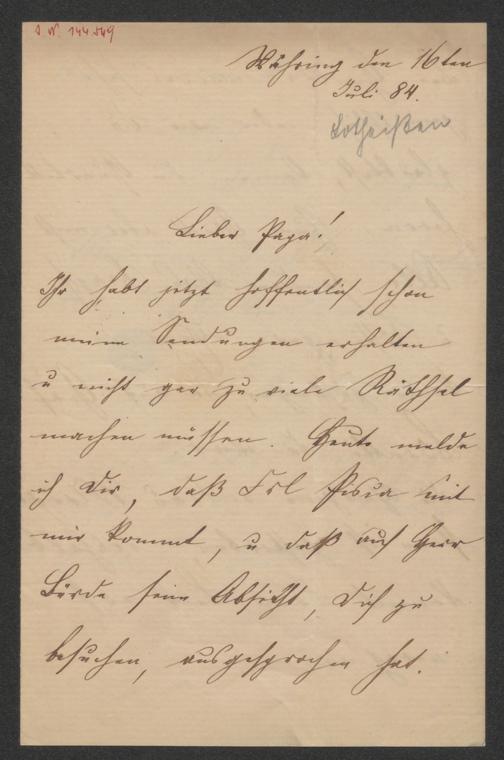 I. N. 144.549
Währing den 16ten
Juli 84.
Lotheißen
Lieber Papa!
Ihr habt jetzt hoffentlich schon
meine Sendungen erhalten
u nicht gar zu viele Räthsel
machen müssen. Heute melde
ich Dir, daß Frl mit
mir kommt, u daß auch Herr
seine Absicht, Dich zu
besuchen, ausgesprochen hat.